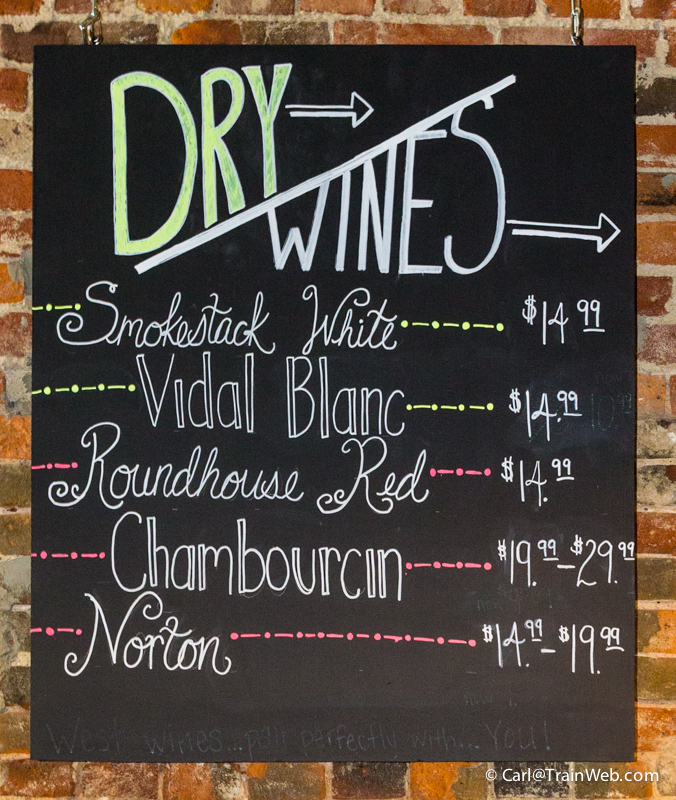 DRY
WINES
Smokestack White $14.99
Vidal Blanc $14.99 10.99
Roundhouse Red $14.99
Chambourcin $19.99-$29.99
Norton $14.99-$19.99
West wines...pair perfectly with... You!
© Carl@TrainWeb.com